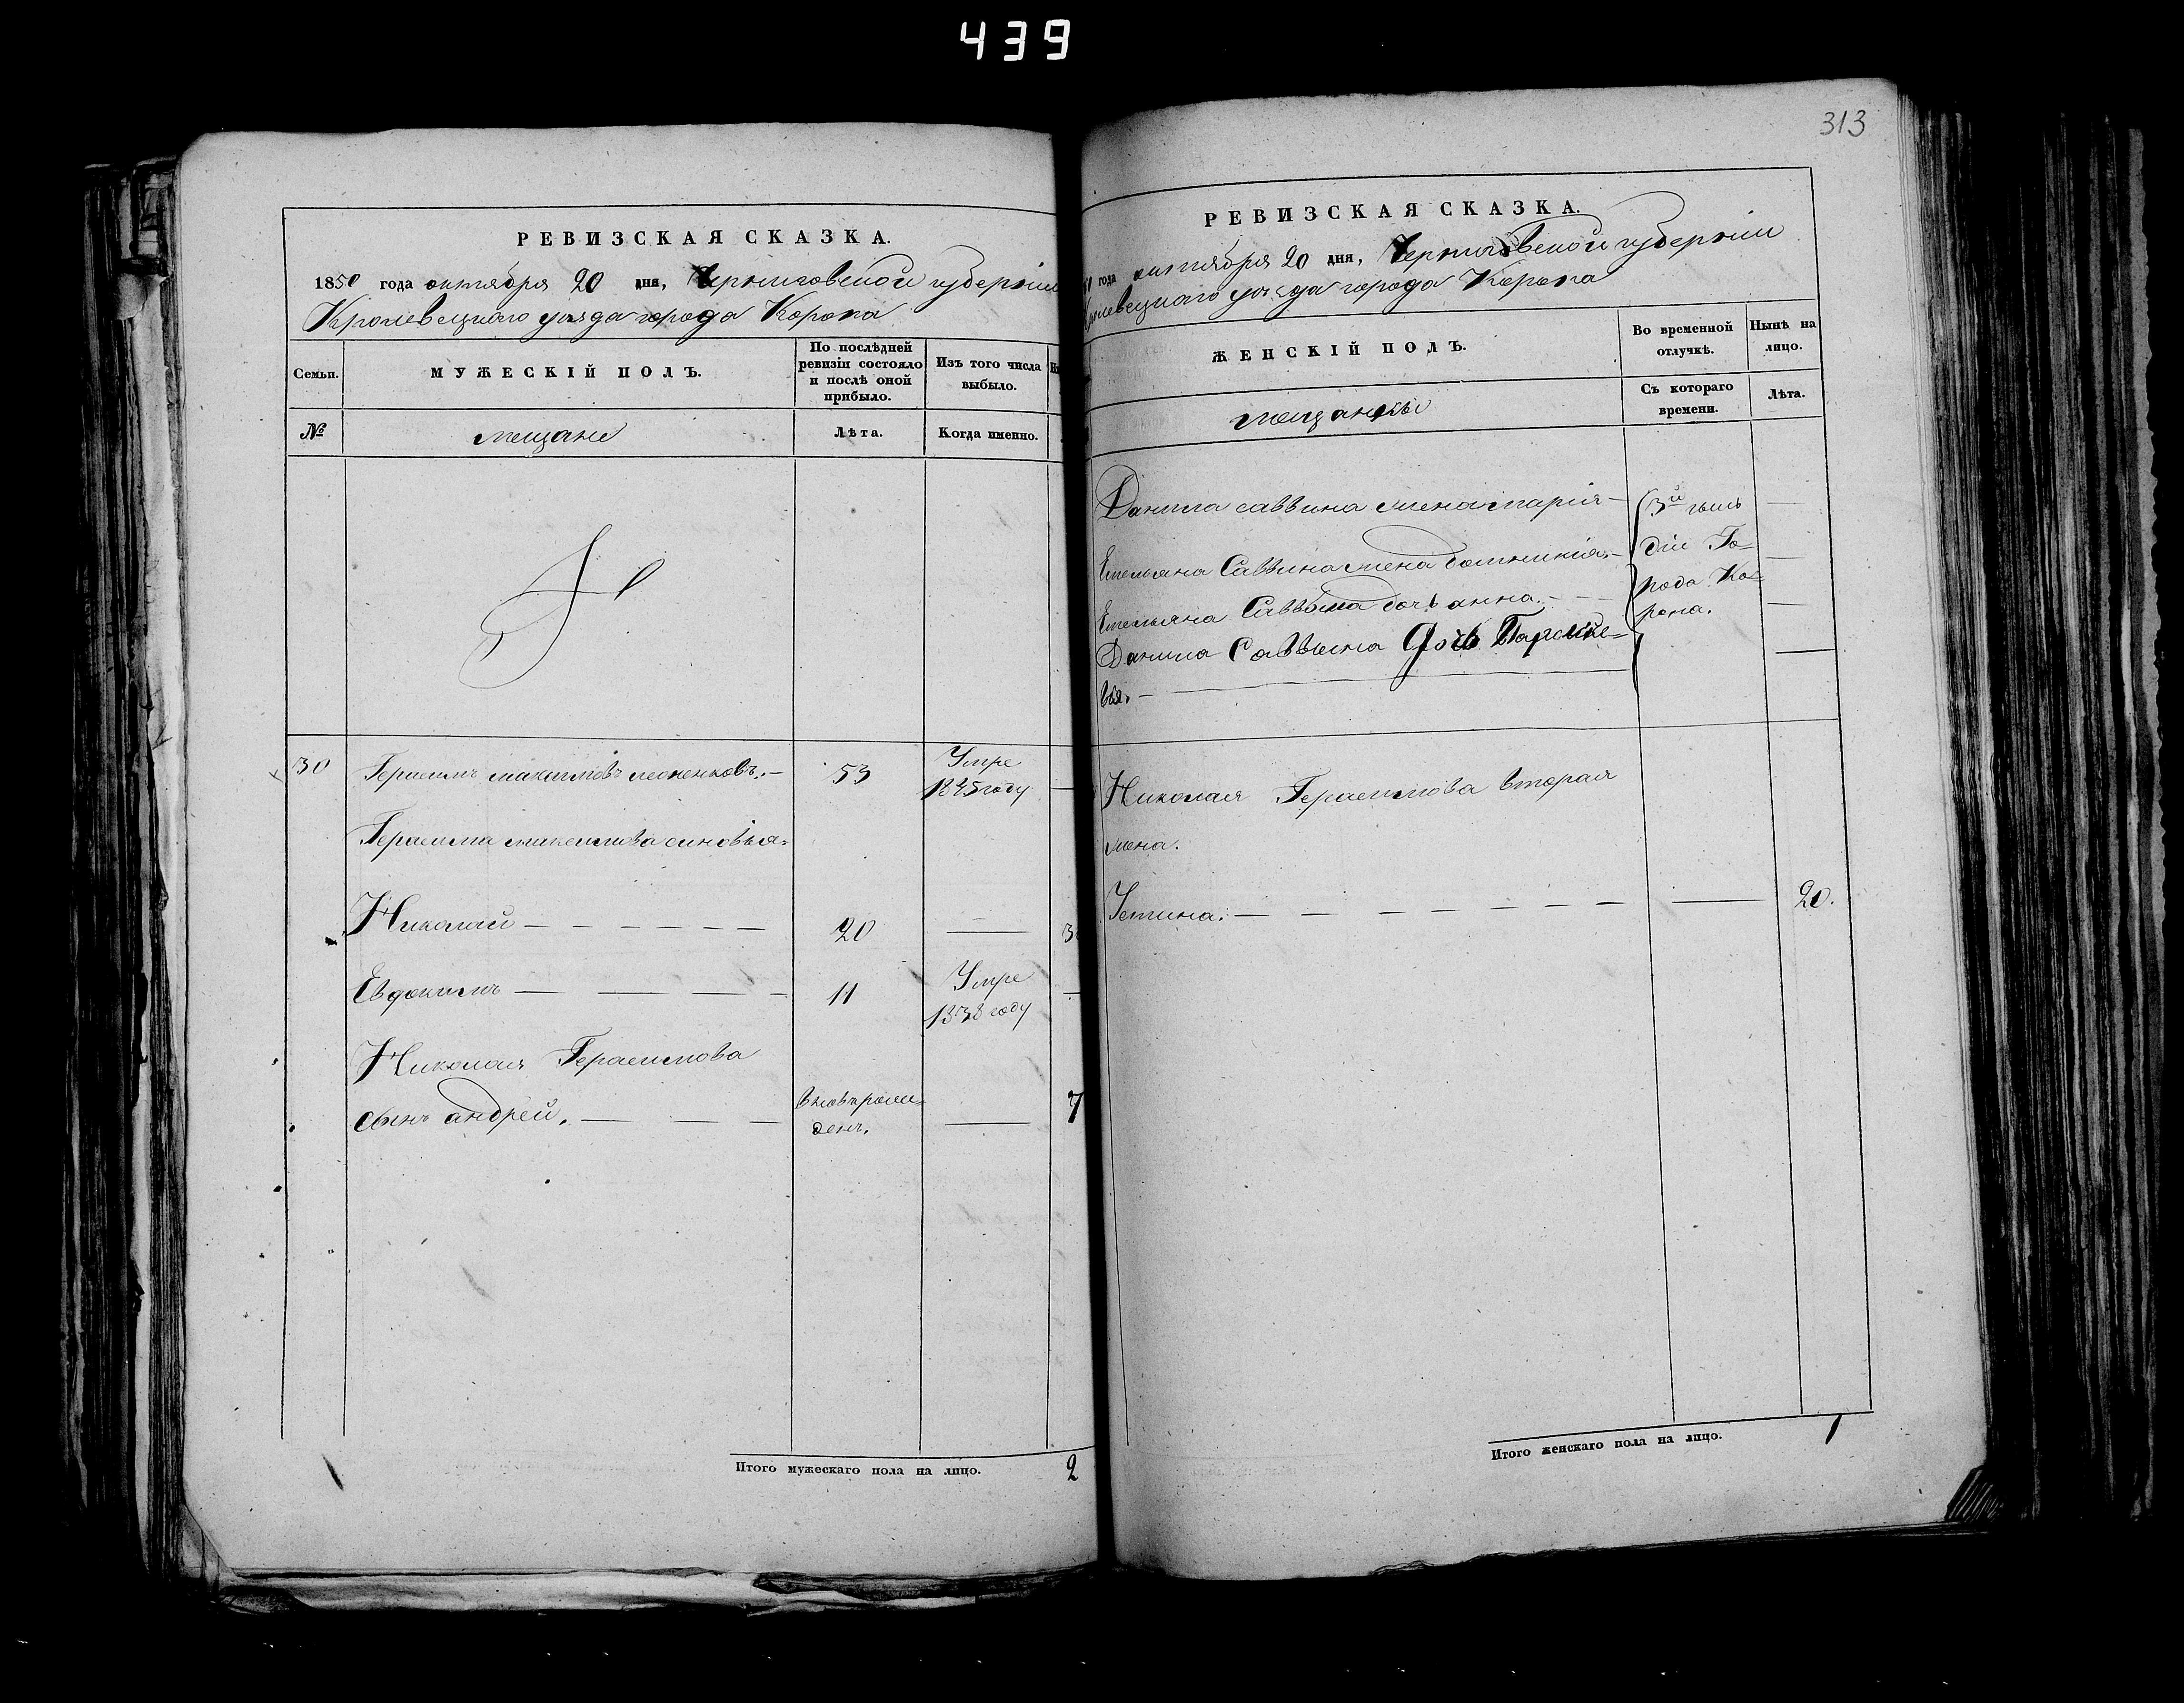 439
РЕВИЗСКАЯ СКАЗКА.
1850 года октября 20 дня, Черниговской губерніи
Кролевецкаго уѣзда города Коропа
Семьи.
МУЖЕСКІЙ ПОЛЪ.
По послѣдней
ревизіи состояло
и послѣ оной
прибыло.
Изъ того числа
выбыло.
№
мещане
Лѣта.
Когда именно.
30
Герасимъ максимовъ леоненковъ.
53
Умре
1845 году
Герасима максимова синовья.
Николай
20
Евдокимъ
11
Умре
1838 году
Николая Герасимова
сынъ андрей.
вновьрож-
денъ.
7
Итого мужескаго пола на лицо.
2
313
РЕВИЗСКАЯ СКАЗКА.
года октября 20 дня, Черниговской губерніи
уѣзда города Коропа
ЖЕНСКІЙ ПОЛЪ.
Во временной
отлучкѣ.
Нынѣ на
лицо.
мещанки
Съ котораго
времени.
Лѣта.
Данила саввина жена марія
3й гиль
діи Го-
рода Ко-
ропа.
Емельяна Саввина жена домникія.
Емельяна Саввина дочь анна.
Данила Саввина дочь Параске-
вія.
Николая Герасимова вторая
жена.
Устина.
20.
Итого женскаго пола на лицо.
1